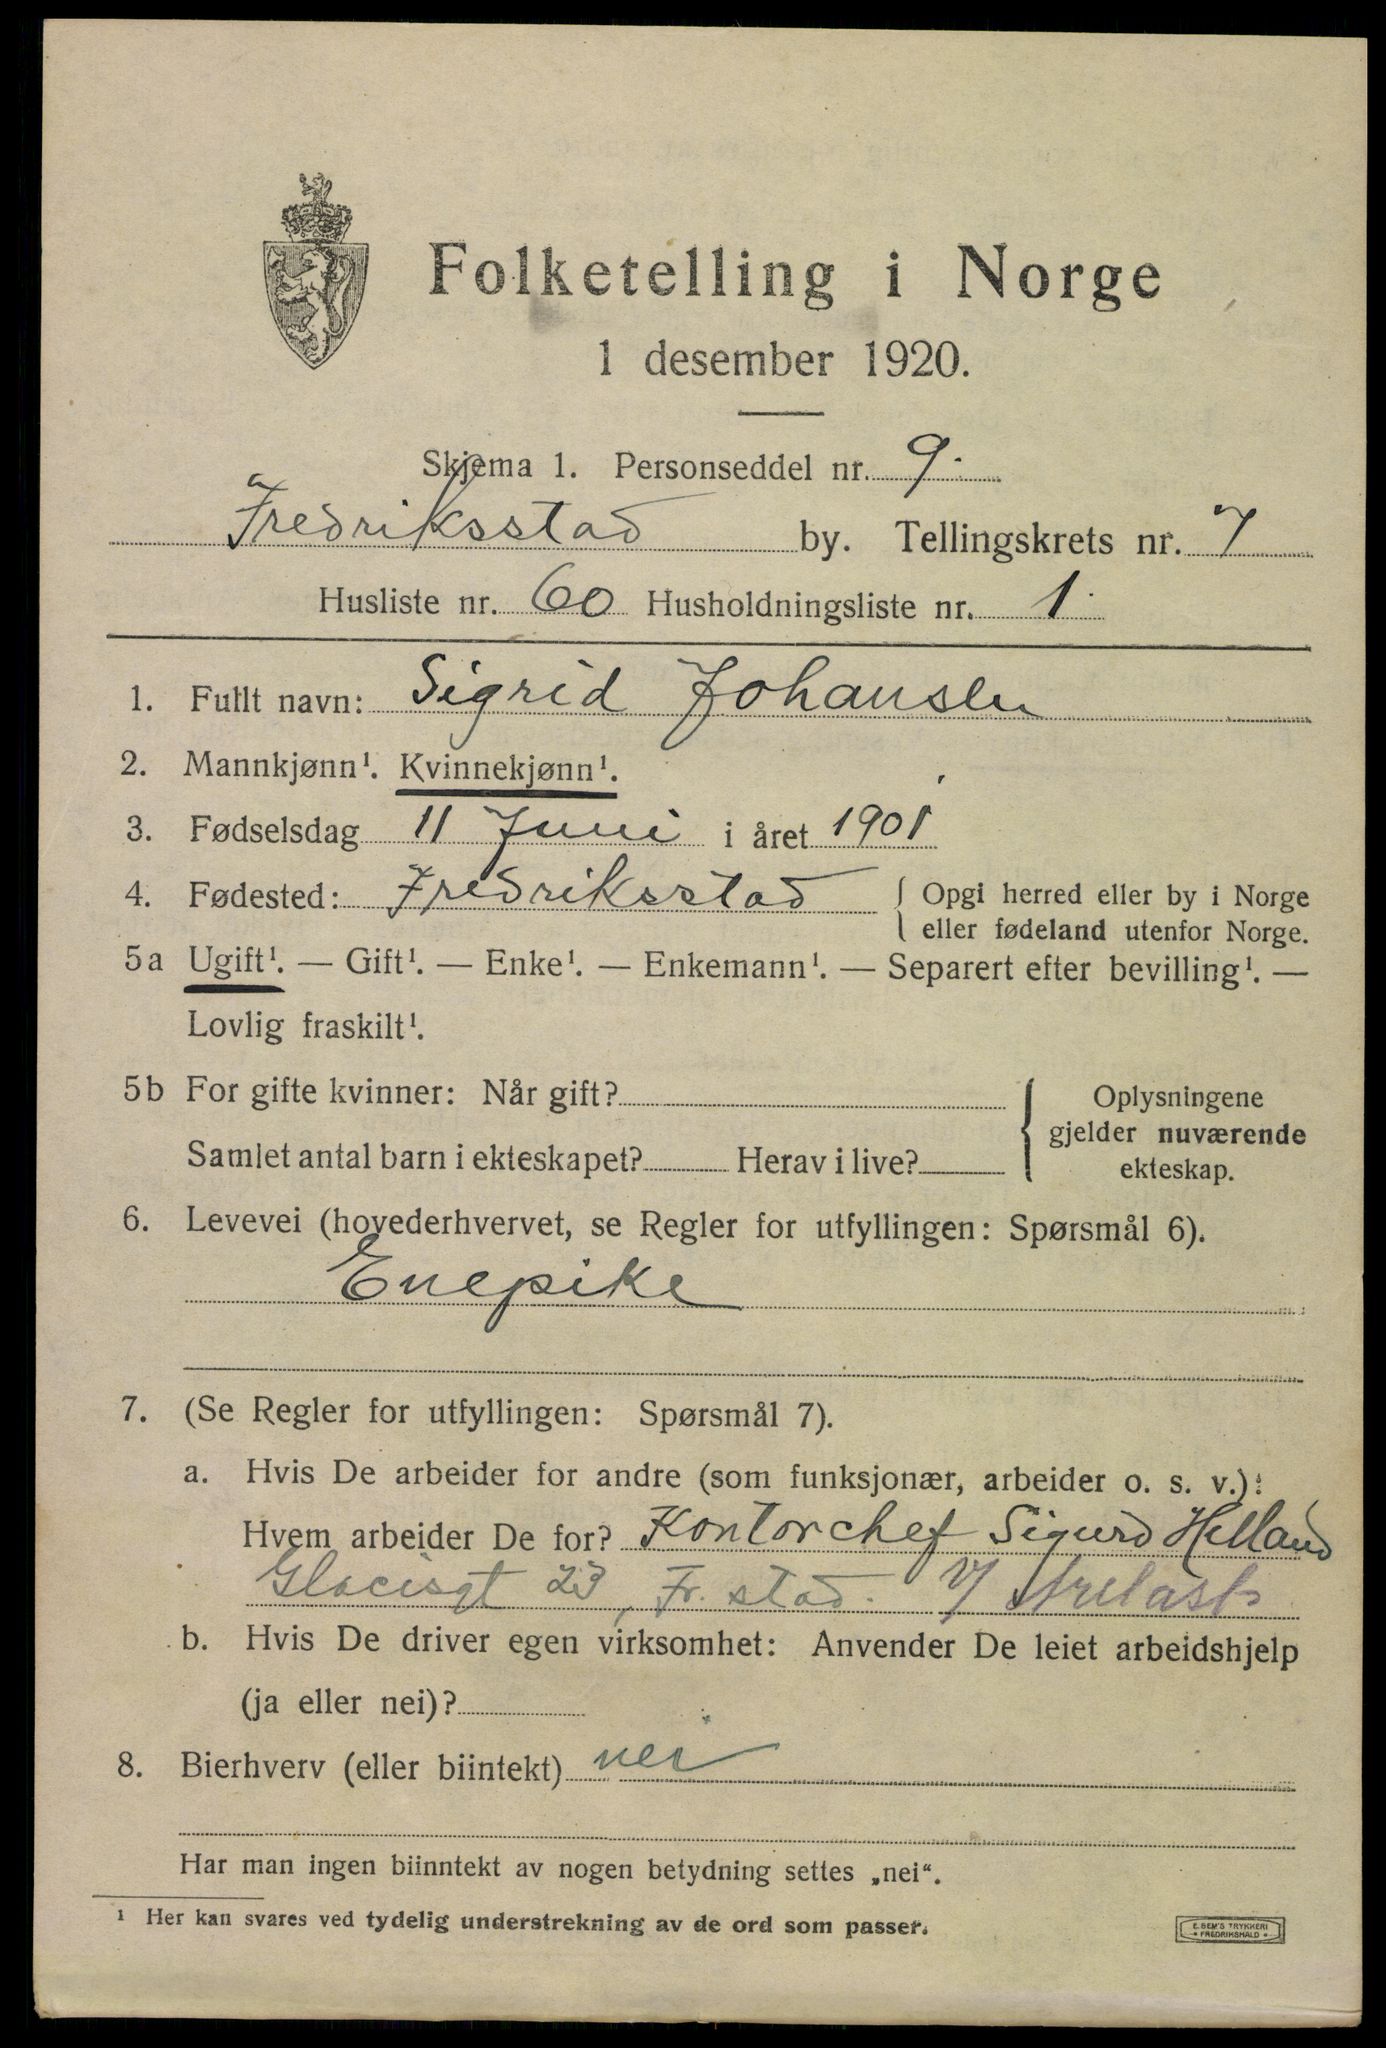 Folketelling i Norge
1 desember 1920.
Skjema 1. Personseddel nr. 9.
Fredriksstad by. Tellingskrets nr. 7
Husliste nr. 60 Husholdningsliste nr. 1.
1. Fullt navn: Sigrid Johansen
2. Mannkjønn¹. Kvinnekjønn¹.
3. Fødselsdag 11 Juni i året 1901
4. Fødested: Fredriksstad { Opgi herred eller by i Norge
eller fødeland utenfor Norge.
5a Ugift¹. — Gift¹. — Enke¹. — Enkemann¹. — Separert efter bevilling¹. —
Lovlig fraskilt¹.
5b For gifte kvinner: Når gift? { Oplysningene
gjelder nuværende
Samlet antal barn i ekteskapet? Herav i live?
ekteskap.
6. Levevei (hovederhvervet, se Regler for utfyllingen: Spørsmål 6).
Enepike
7. (Se Regler for utfyllingen: Spørsmål 7).
a. Hvis De arbeider for andre (som funksjonær, arbeider o. s. v.):
Hvem arbeider De for? Kontorchef Sigurd Helland
Glacisgt 23, Fr. stad.
b. Hvis De driver egen virksomhet: Anvender De leiet arbeidshjelp
(ja eller nei)?
8. Bierhverv (eller biintekt) nei
Har man ingen biinntekt av nogen betydning settes „nei“.
¹ Her kan svares ved tydelig understrekning av de ord som passer.
E. SEM'S TRYKKERI
FREDRIKSHALD